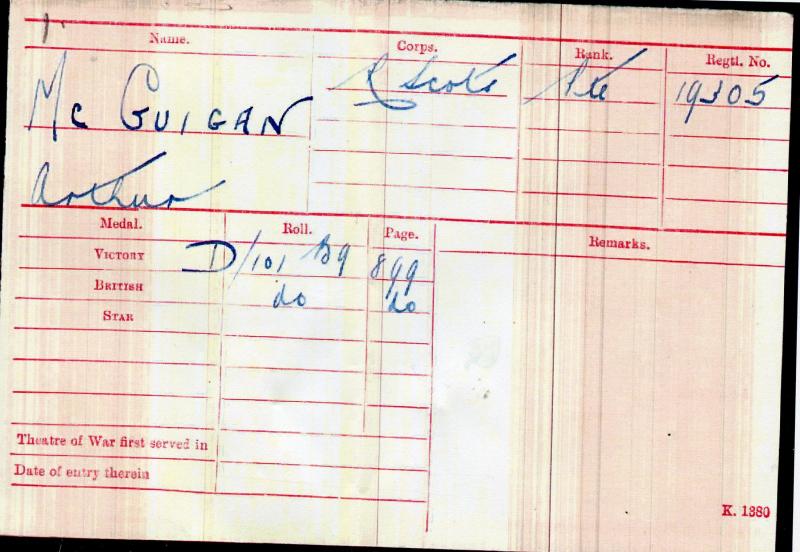 Name. Corps. Rank. Regtl. No.
Mc GUIGAN R Scots Pte 19305
Arthur
Medal. Roll. Page. Remarks.
VICTORY D/101 B9 899
BRITISH do do
STAR
Theatre of War first served in
Date of entry therein
K. 1380